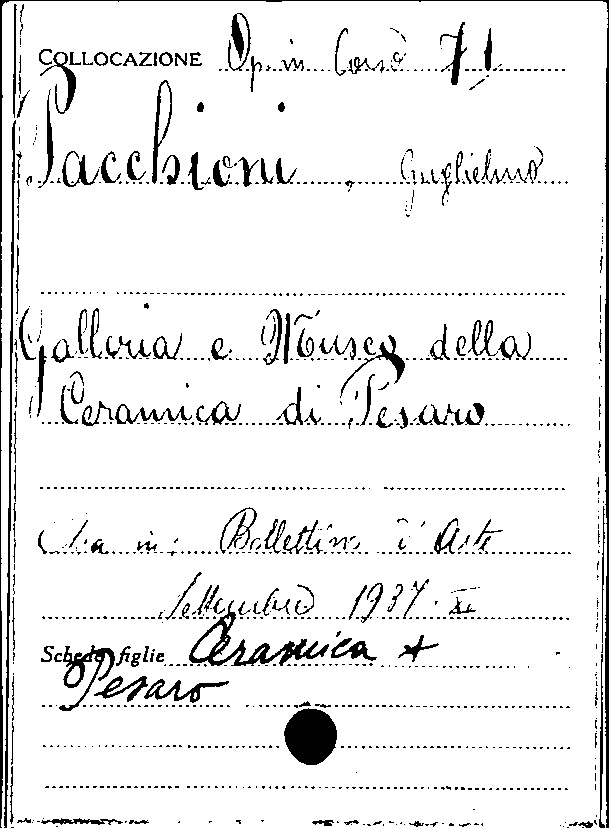 COLLOCAZIONE Op. in Corso 71
Pacchioni, Guglielmo
Galleria e Museo della
Ceramica di Pesaro
in: Bollettino d'Arte
Settembre 1937.
Schede figlie Ceramica
Pesaro